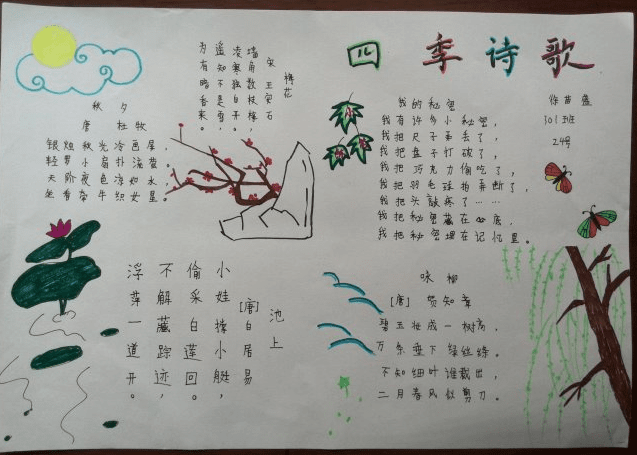 四季诗歌
徐苗盛
301班
24号
秋夕
唐 杜牧
银烛秋光冷画屏,
轻罗小扇扑流萤。
天阶夜色凉如水,
坐看牵牛织女星。
梅花
宋 王安石
墙角数枝梅,
凌寒独自开。
遥知不是雪,
为有暗香来。
我的秘密
我有许多小秘密,
我把尺子弄丢了,
我把盘子打破了,
我把巧克力偷吃了,
我把羽毛球拍弄断了,
我把头敲疼了……
我把秘密藏在心底,
我把秘密埋在记忆里。
池上
[唐]白居易
小娃撑小艇,
偷采白莲回。
不解藏踪迹,
浮萍一道开。
咏柳
[唐] 贺知章
碧玉妆成一树高,
万条垂下绿丝绦。
不知细叶谁裁出,
二月春风似剪刀。